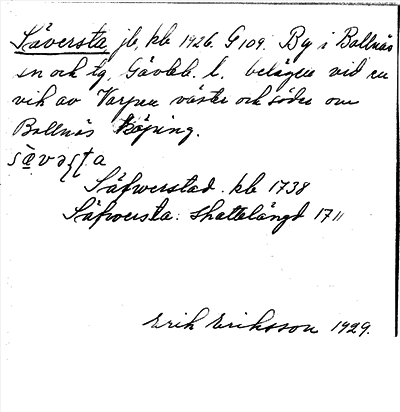 Säversta jb, kb 1926. G 109. By i Bollnäs
sn och tg, Gävleb. l. belägen vid en
vik av Varpen väster och söder om
Bollnäs Köping.
Säfwerstad. kb 1738
Säfversta: Skattelängd 1711
Erik Eriksson 1929.